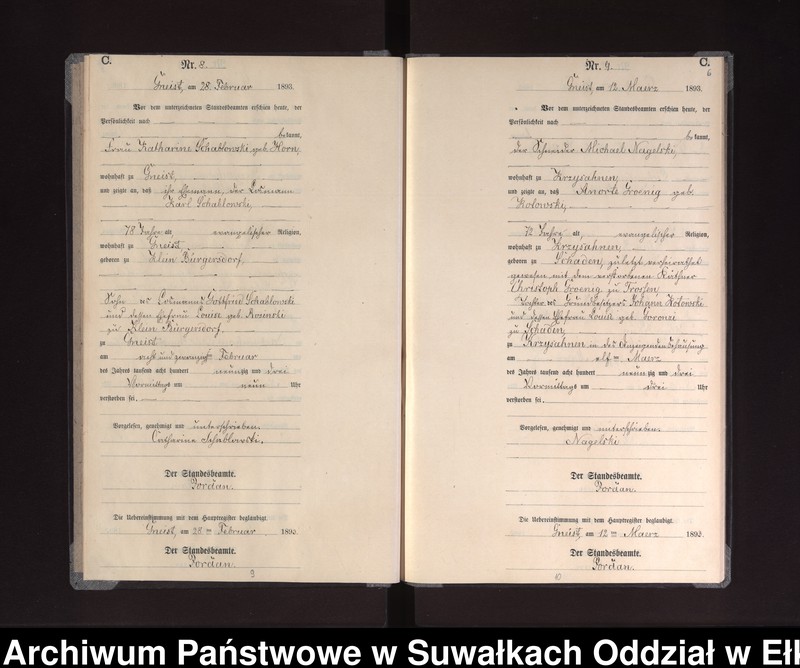 C.
Nr. 8.
Gneist, am 28. Februar 1893.
Vor dem unterzeichneten Standesbeamten erschien heute, der
Persönlichkeit nach
bekannt,
Frau Katharine Schablowski geb. Horn,
wohnhaft zu Gneist,
und zeigte an, daß ihr Ehemann, der Losmann
Karl Schablowski,
78 Jahre alt evangelischer Religion,
wohnhaft zu Gneist
geboren zu Klein Bürgersdorf
Sohn des Losmanns Gottfried Schablowski
und dessen Ehefrau Louise geb.
zu Klein Bürgersdorf
zu Gneist
am acht und zwanzigst Februar
des Jahres tausend acht hundert neunzig und drei
Vormittags um neun Uhr
verstorben sei.
Vorgelesen, genehmigt und unterschrieben
Catharine Schablowski.
Der Standesbeamte.
Jordan.
Die Uebereinstimmung mit dem Hauptregister beglaubigt
Gneist, am 28 ten Februar 1893.
Der Standesbeamte.
Jordan.
9
C.
6
Nr. 9.
Gneist, am 12. Maerz 1893.
Vor dem unterzeichneten Standesbeamten erschien heute, der
Persönlichkeit nach
bekannt,
der Schneider Michael Nagelski,
wohnhaft zu Krzysahnen,
und zeigte an, daß Anorte Groenig geb.
Kotowski,
72 Jahre alt, evangelischer Religion,
wohnhaft zu Krzysahnen,
geboren zu Schaden, zuletzt verheirathet
gewesen mit dem verstorbenen Käthner
Christoph Groenig zu Trossen,
Tochter des Grundbesitzers Johann Kotowski
und dessen Ehefrau Louise geb. Goronzi
zu Schaden,
zu Krzysahnen in des Anzeigenden Behausung
am elf ten Maerz
des Jahres tausend acht hundert neunzig und drei
Vormittags um drei Uhr
verstorben sei.
Vorgelesen, genehmigt und unterschrieben
Nagelski
Der Standesbeamte.
Jordan.
Die Uebereinstimmung mit dem Hauptregister beglaubigt
Gneist, am 12 ten Maerz 1893.
Der Standesbeamte.
Jordan.
10
Archiwum Państwowe w Suwałkach Oddział w Eł